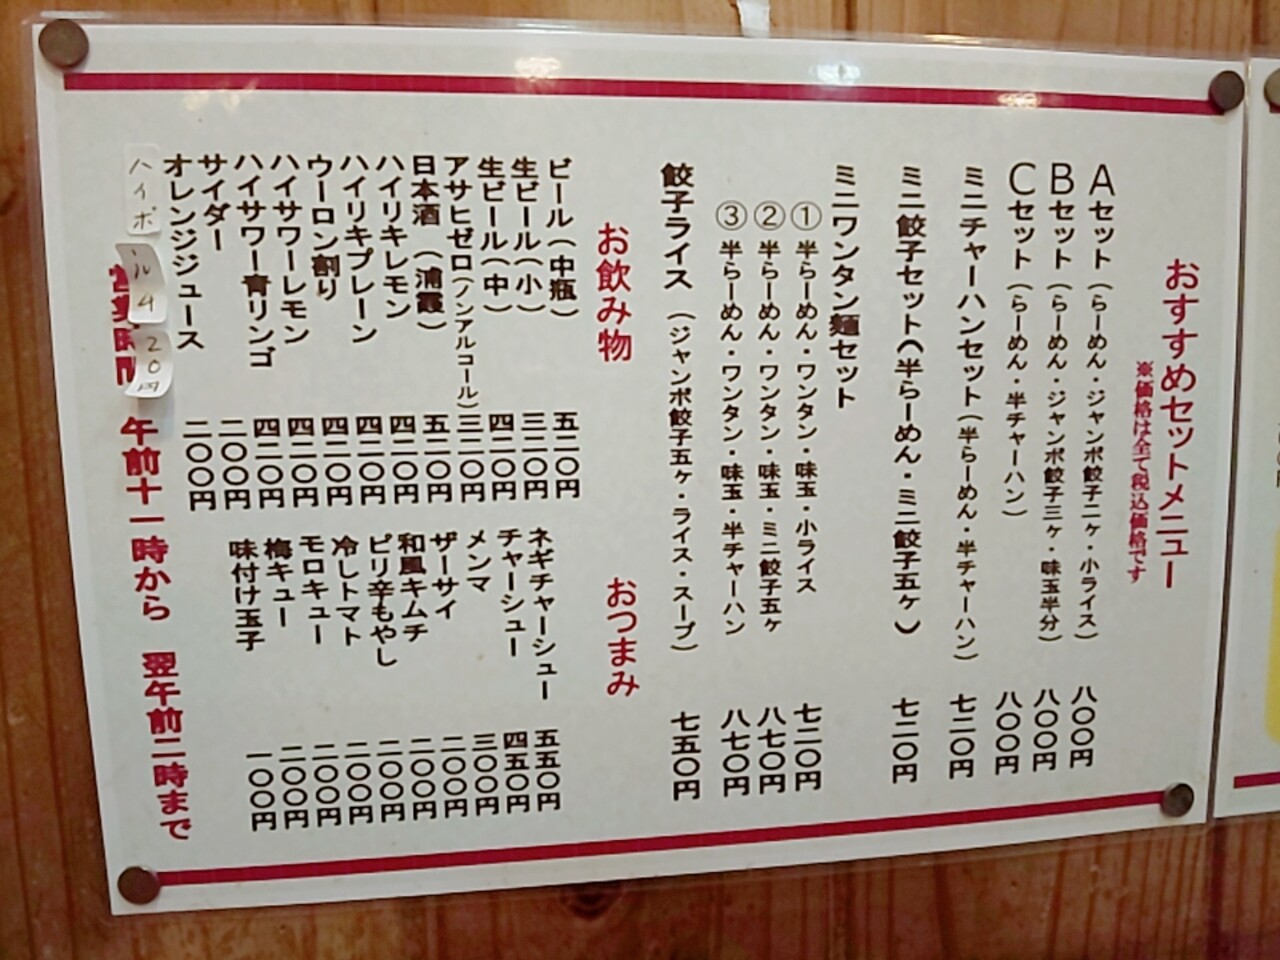 おすすめセットメニュー
※価格は全て税込価格です
Aセット(らーめん・ジャンボ餃子二ヶ・小ライス) 八〇〇円
Bセット(らーめん・ジャンボ餃子三ヶ・味玉半分) 八〇〇円
Cセット(らーめん・半チャーハン) 八〇〇円
ミニチャーハンセット(半らーめん・半チャーハン) 七二〇円
ミニ餃子セット(半らーめん・ミニ餃子五ヶ) 七二〇円
ミニワンタン麺セット
① 半らーめん・ワンタン・味玉・小ライス 七二〇円
② 半らーめん・ワンタン・味玉・ミニ餃子五ヶ 八七〇円
③ 半らーめん・ワンタン・味玉・半チャーハン 八七〇円
餃子ライス(ジャンボ餃子五ヶ・ライス・スープ) 七五〇円
お飲み物
ビール(中瓶) 五二〇円
生ビール(小) 三二〇円
生ビール(中) 四二〇円
アサヒゼロ(ノンアルコール) 三二〇円
日本酒(浦霞) 五二〇円
ハイリキレモン 四二〇円
ハイリキプレーン 四二〇円
ウーロン割り 四二〇円
ハイサワーレモン 四二〇円
ハイサワー青リンゴ 四二〇円
サイダー 二〇〇円
オレンジジュース 二〇〇円
ハイボール 420円
おつまみ
ネギチャーシュー 五五〇円
チャーシュー 四五〇円
メンマ 三〇〇円
ザーサイ 二〇〇円
和風キムチ 二〇〇円
ピリ辛もやし 二〇〇円
冷しトマト 二〇〇円
モロキュー 二〇〇円
梅キュー 二〇〇円
味付け玉子 一〇〇円
営業時間 午前十一時から 翌午前二時まで